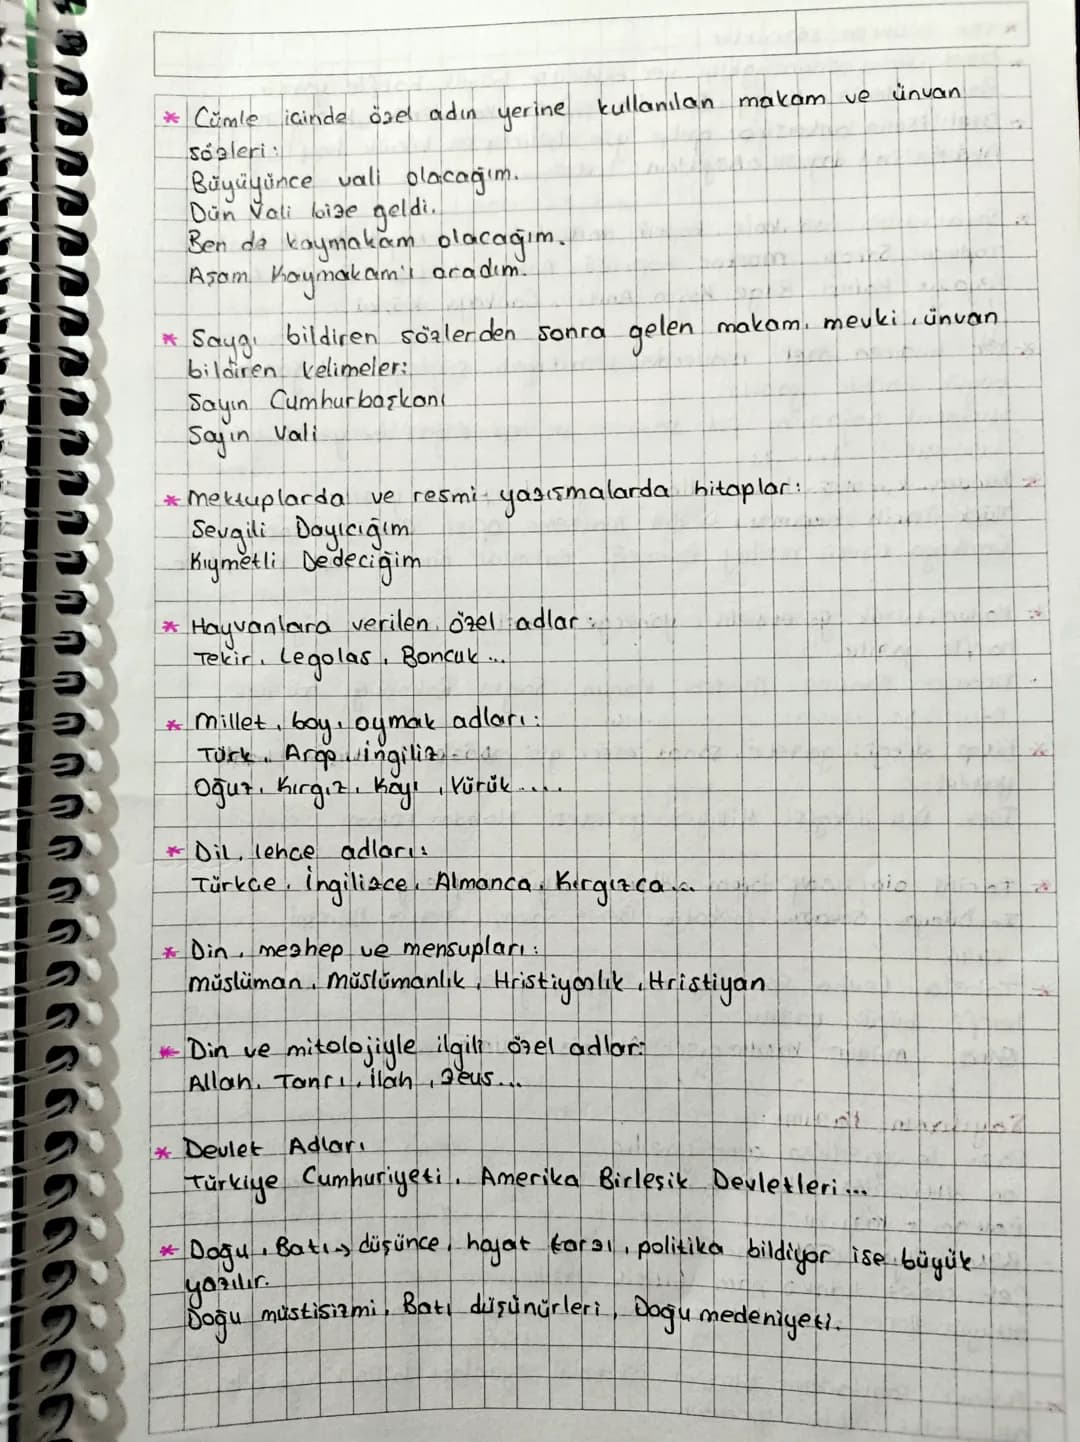 * Cümle içinde özel adın yerine kullanılan makam ve ünvan
sözleri:
Büyüyünce vali olacağım.
Dün Vali bize geldi.
Ben de kaymakam olacağım.
Aşam Kaymakam'ı aradım.
* Saygı bildiren sözlerden sonra gelen makam, mevki, ünvan
bildiren kelimeler:
Sayın Cumhurbaşkanı
Sayın Vali
* Mektuplarda ve resmi yazışmalarda hitaplar:
Sevgili Dayıcığım
Kıymetli Dedeciğim
* Hayvanlara verilen özel adlar:
Tekir, Legolas, Boncuk ...
* Millet, boy, oymak adları:
Türk, Arap, ingiliz
Oğuz, Kırgız, Kayı, Yürük ....
* Dil, lehçe adları:
Türkçe, İngilizce, Almanca, Kırgızca ...
* Din, mezhep ve mensupları:
müslüman, Müslümanlık, Hristiyanlık, Hristiyan
* Din ve mitolojiyle ilgili özel adlar:
Allah, Tanrı, ilah, Zeus ...
* Devlet Adları
Türkiye Cumhuriyeti, Amerika Birleşik Devletleri ...
* Doğu, Batı → düşünce, hayat tarzı, politika bildiyor ise büyük
yazılır.
Doğu mistisizmi, Batı düşünürleri, Doğu medeniyeti.